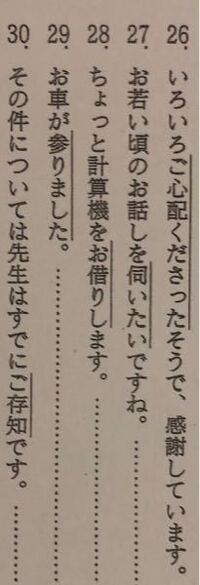 26. いろいろご心配くださったそうで、感謝しています。
27. お若い頃のお話しを伺いたいですね。…………
28. ちょっと計算機をお借りします。…………
29. お車が参りました。…………………
30. その件については先生はすでにご存知です。………